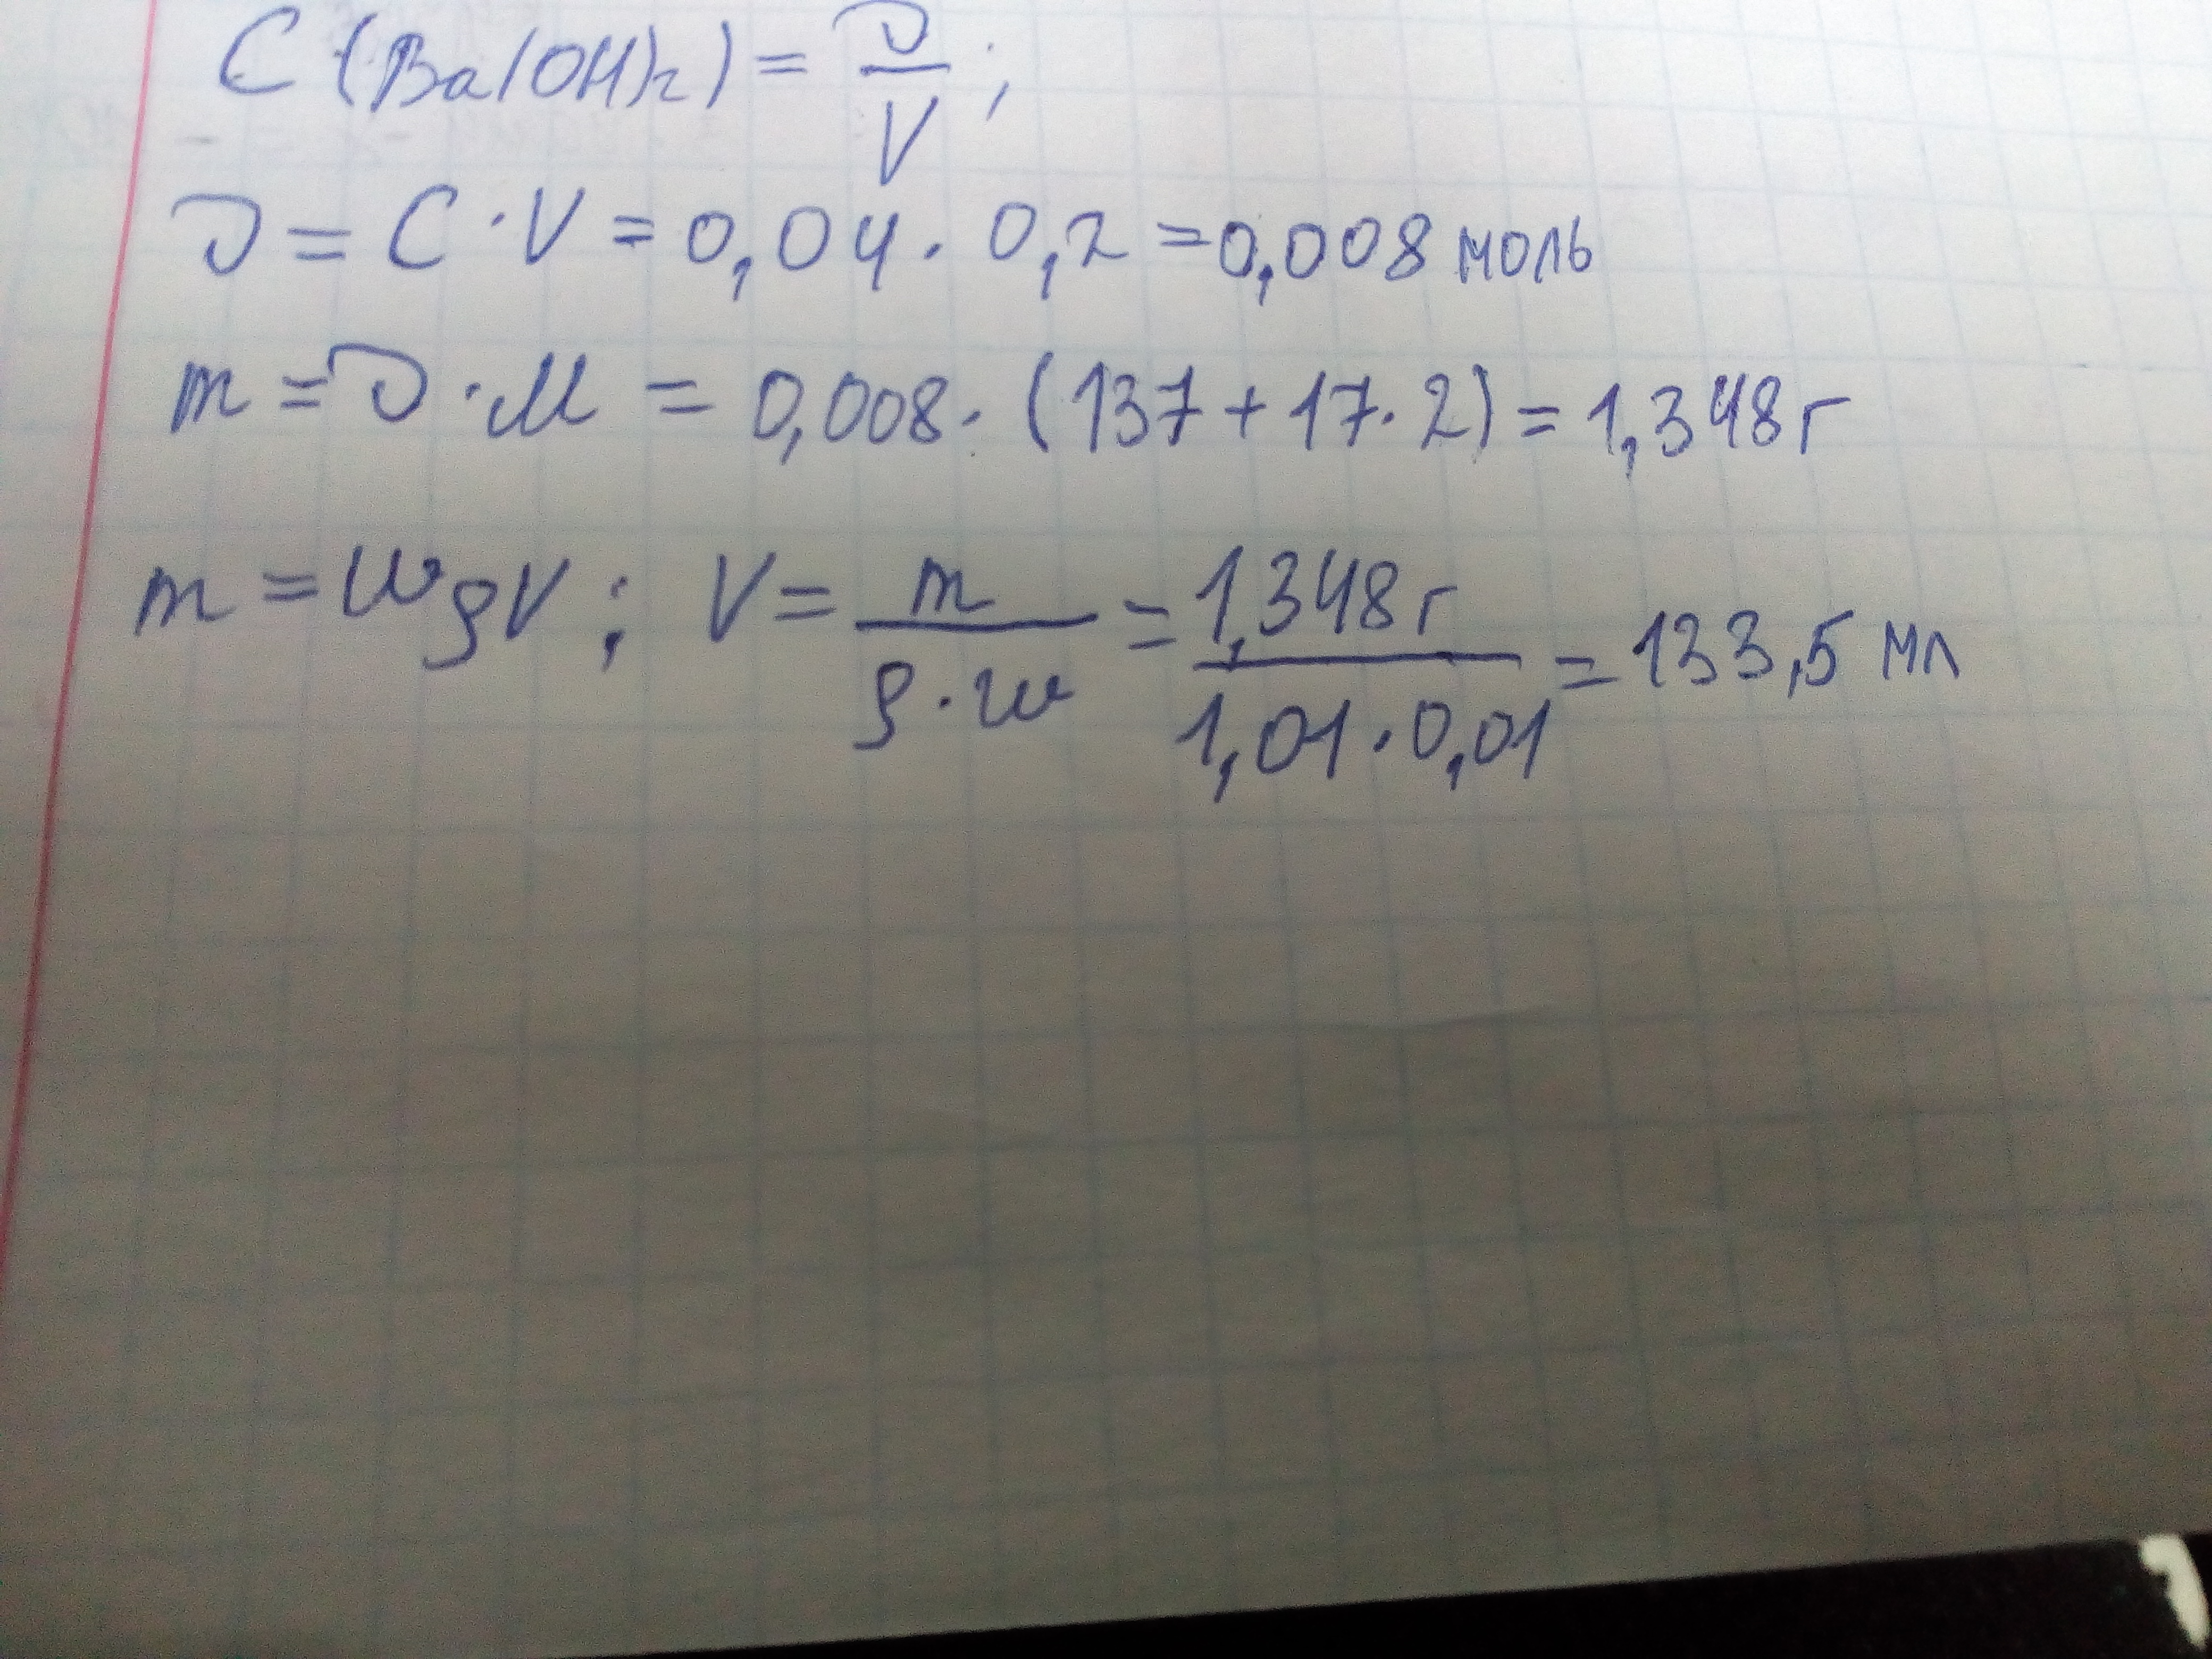 C (Ba(OH)2) = ν/V ;
ν = C · V = 0,04 · 0,2 = 0,008 моль
m = ν · M = 0,008 · (137 + 17 · 2) = 1,348 г
m = wρV ; V = m/(ρ · w) = 1,348 г/(1,01 · 0,01) = 133,5 мл